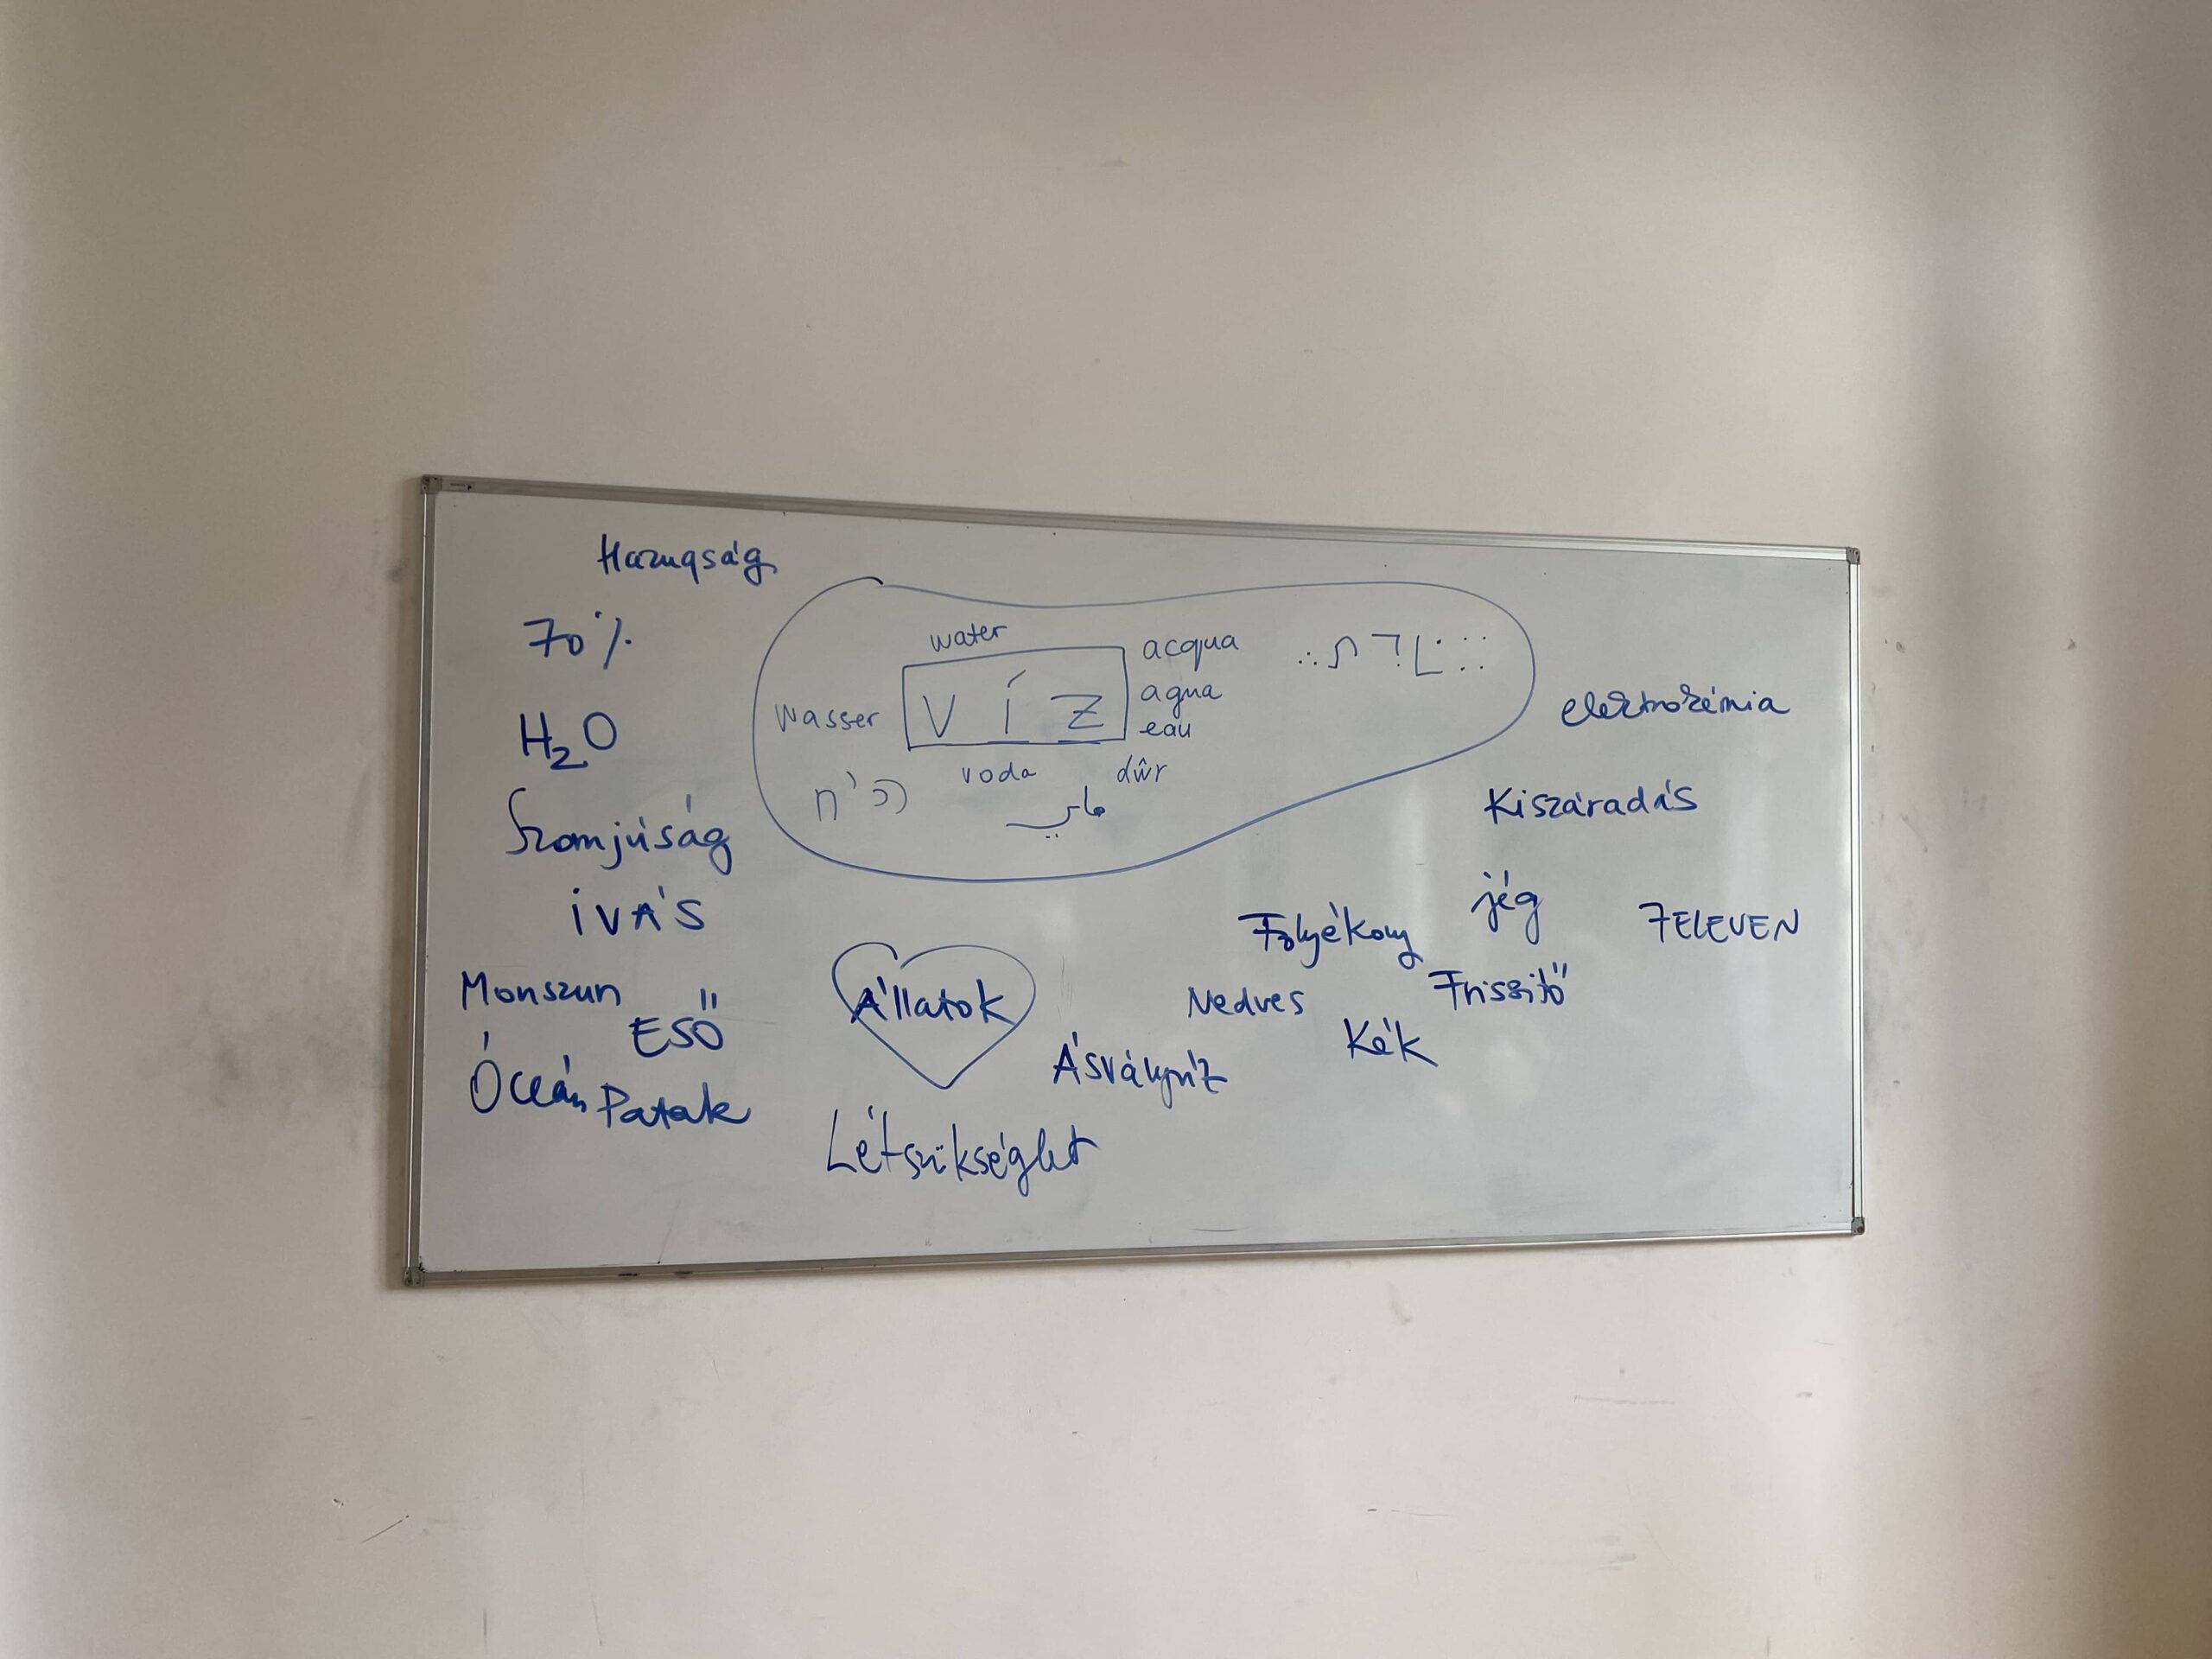 Hazugság
70%
H₂O
Szomjúság
IVÁS
Monszun
ESŐ
Óceán
Patak
water
wasser
VÍZ
acqua
agua
eau
voda
dŵr
Állatok
Létszükséglet
Ásványvíz
Nedves
Folyékony
Kék
jég
Frissitő
elektrokémia
Kiszáradás
7ELEVEN